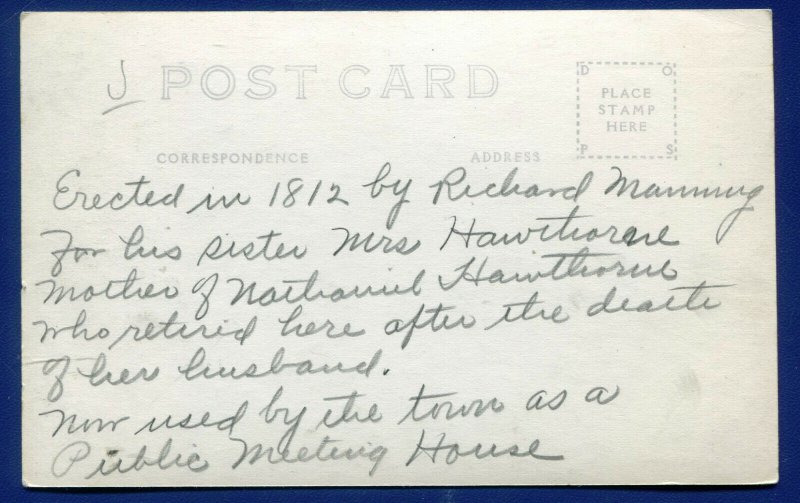 J POST CARD
D O
PLACE
STAMP
HERE
P S
CORRESPONDENCE ADDRESS
Erected in 1812 by Richard Manning
For his sister Mrs Hawthorne
Mother of Nathaniel Hawthorne
who retired here after the death
of her husband.
Now used by the town as a
Public Meeting House